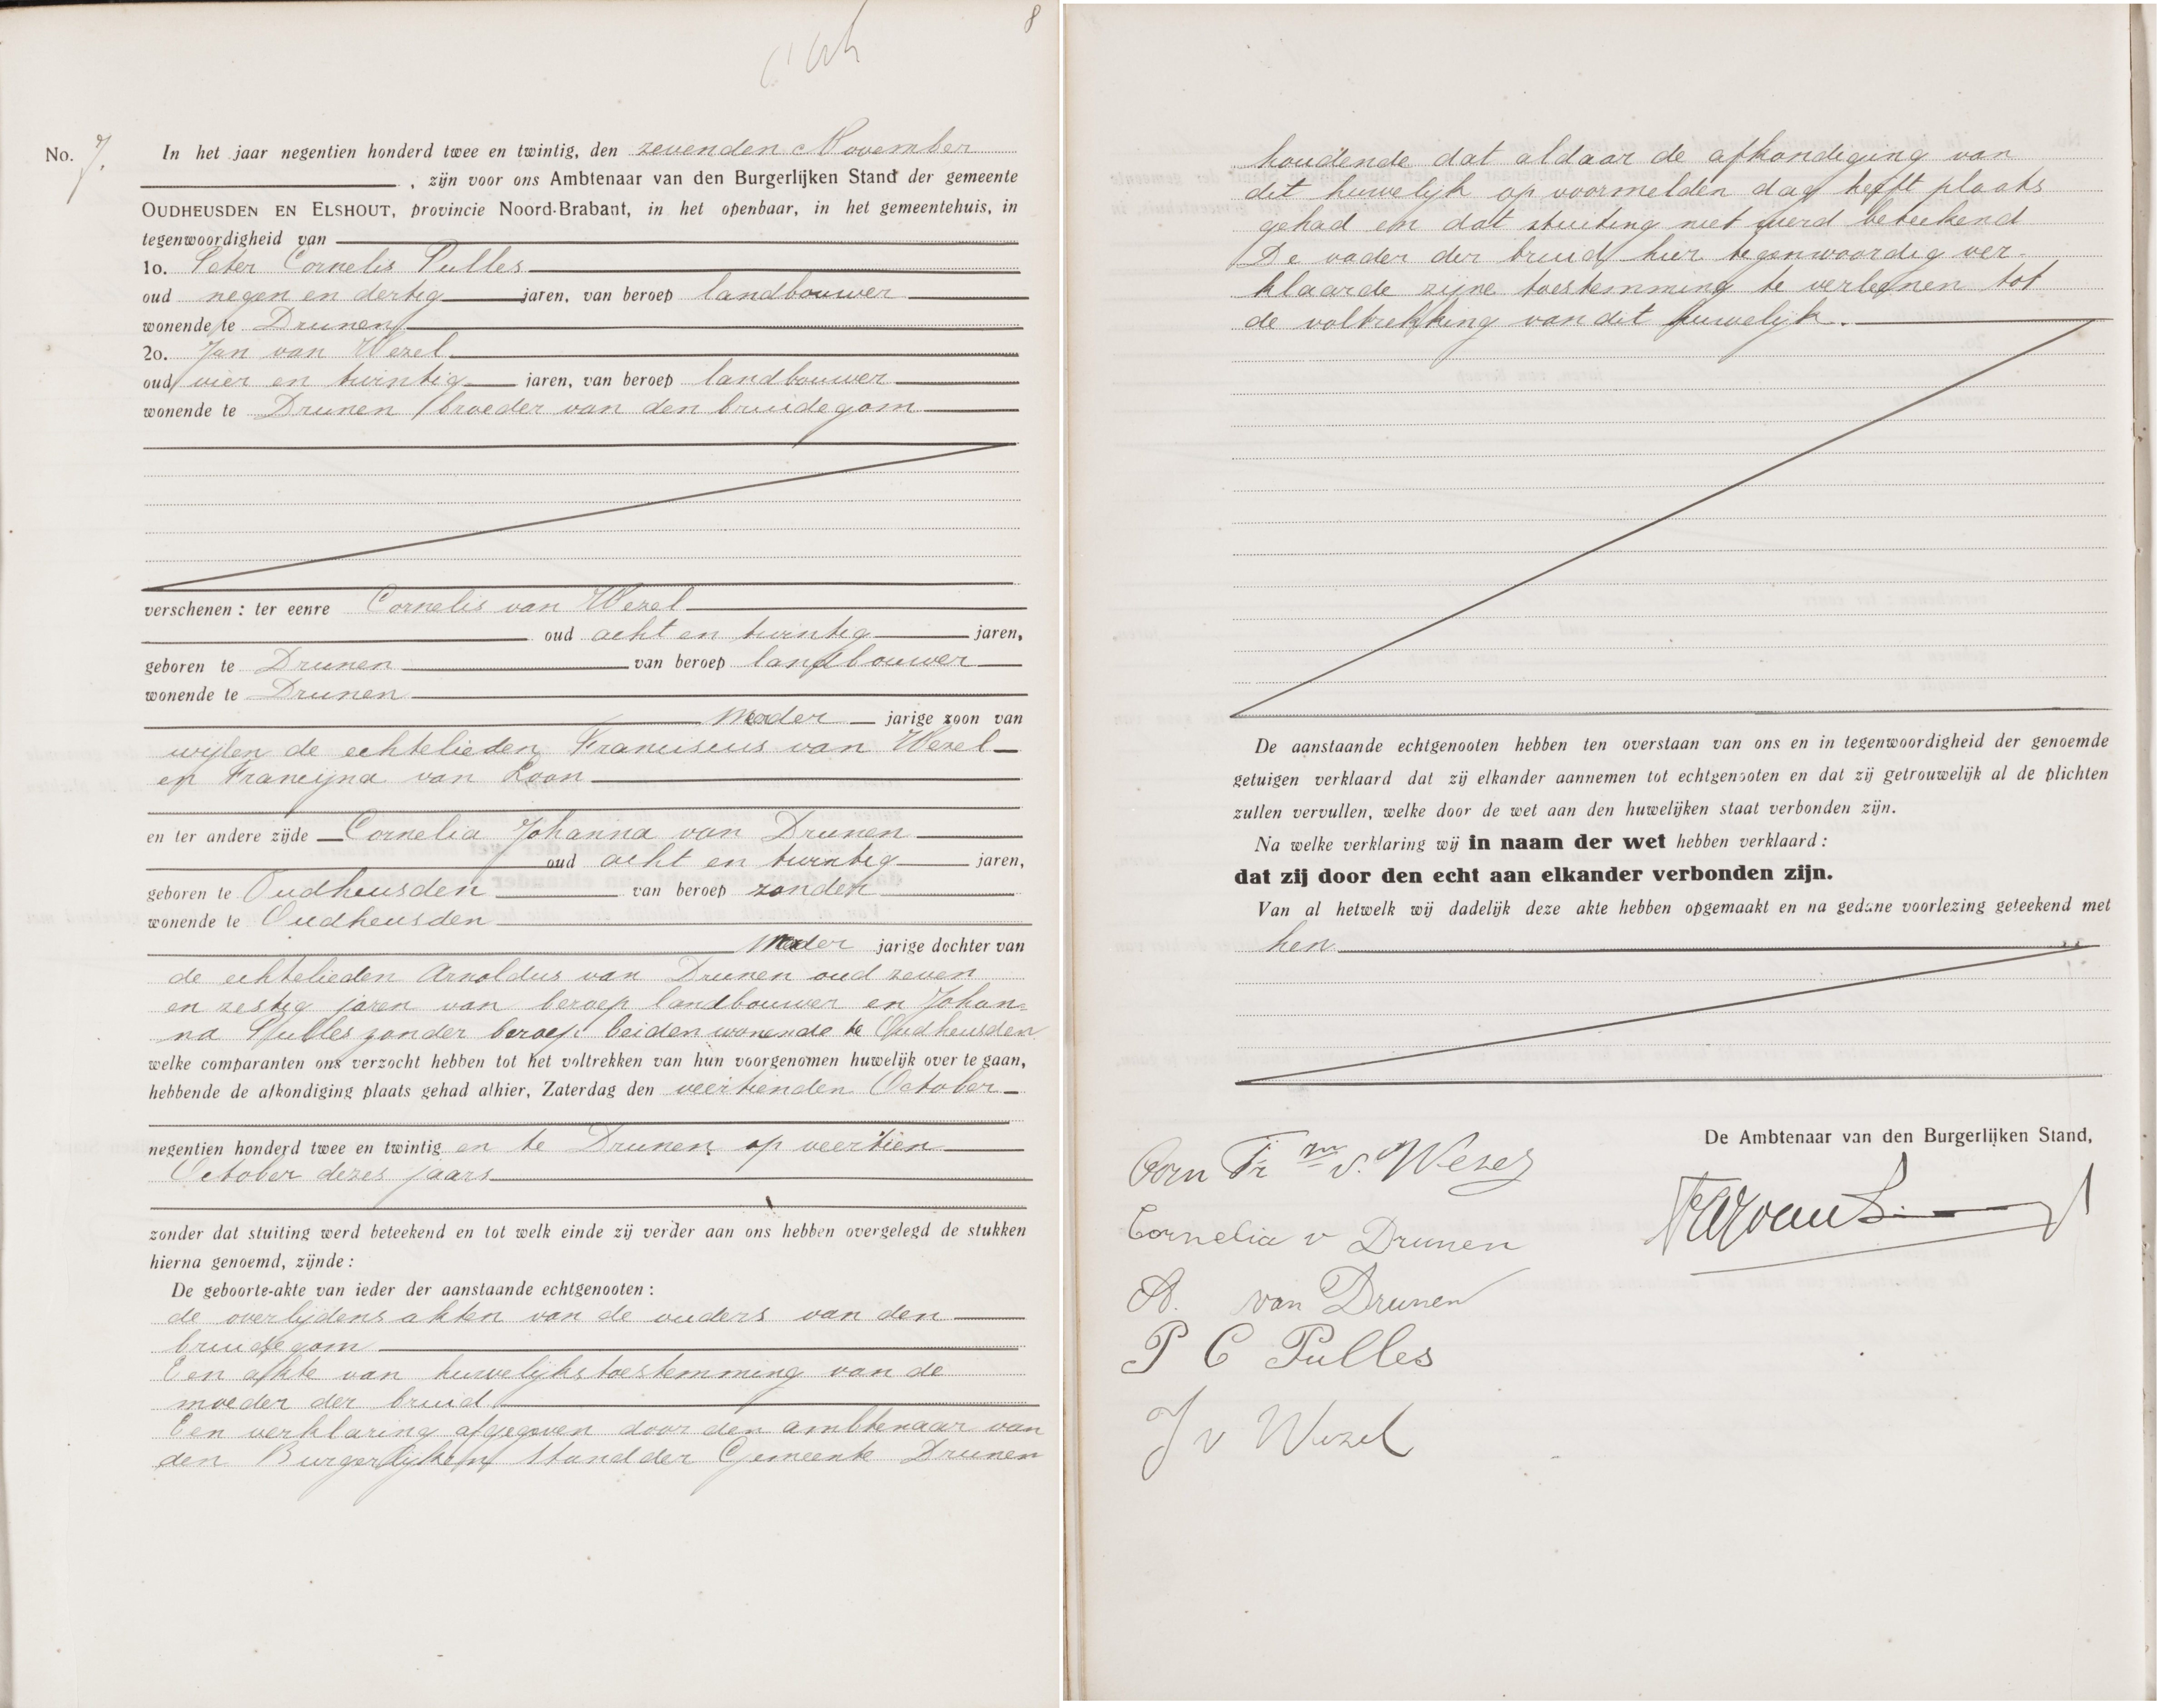 8
No. 7.
In het jaar negentien honderd twee en twintig, den zevenden November
, zijn voor ons Ambtenaar van den Burgerlijken Stand der gemeente
OUDHEUSDEN EN ELSHOUT, provincie Noord-Brabant, in het openbaar, in het gemeentehuis, in
tegenwoordigheid van
1o. Peter Cornelis Pulles
oud negen en dertig jaren, van beroep landbouwer
wonende te Drunen
2o. Jan van Wezel
oud vier en twintig jaren, van beroep landbouwer
wonende te Drunen broeder van den bruidegom
verschenen: ter eenre Cornelis van Wezel
oud acht en twintig jaren,
geboren te Drunen van beroep landbouwer
wonende te Drunen
meerder jarige zoon van
wijlen de echtelieden Franciscus van Wezel
en Francijna van Loon
en ter andere zijde Cornelia Johanna van Drunen
oud acht en twintig jaren,
geboren te Oudheusden van beroep zonder
wonende te Oudheusden
meerder jarige dochter van
de echtelieden Arnoldus van Drunen oud zeven
en zestig jaren van beroep landbouwer en Johan=
na Pulles zonder beroep beiden wonende te Oudheusden
welke comparanten ons verzocht hebben tot het voltrekken van hun voorgenomen huwelijk over te gaan,
hebbende de afkondiging plaats gehad alhier, Zaterdag den veertienden October
negentien honderd twee en twintig en te Drunen op veertien
October dezes jaars
zonder dat stuiting werd beteekend en tot welk einde zij verder aan ons hebben overgelegd de stukken
hierna genoemd, zijnde:
De geboorte-akte van ieder der aanstaande echtgenooten:
de overlijdens akten van de ouders van den
bruidegom
Een akte van huwelijkstoestemming van de
moeder der bruid
Een verklaring afgegeven door den ambtenaar van
den Burgerlijken Stand der Gemeente Drunen
houdende dat aldaar de afkondiging van
dit huwelijk op voormelden dag heeft plaats
gehad en dat stuiting niet werd beteekend
De vader der bruid hier tegenwoordig ver-
klaarde zijne toestemming te verleenen tot
de voltrekking van dit huwelijk.
De aanstaande echtgenooten hebben ten overstaan van ons en in tegenwoordigheid der genoemde
getuigen verklaard dat zij elkander aannemen tot echtgenooten en dat zij getrouwelijk al de plichten
zullen vervullen, welke door de wet aan den huwelijken staat verbonden zijn.
Na welke verklaring wij in naam der wet hebben verklaard:
dat zij door den echt aan elkander verbonden zijn.
Van al hetwelk wij dadelijk deze akte hebben opgemaakt en na gedane voorlezing geteekend met
hen
De Ambtenaar van den Burgerlijken Stand,
Corn Fr v. Wezel
Cornelia v Drunen
A. van Drunen
P C Pulles
J v Wezel